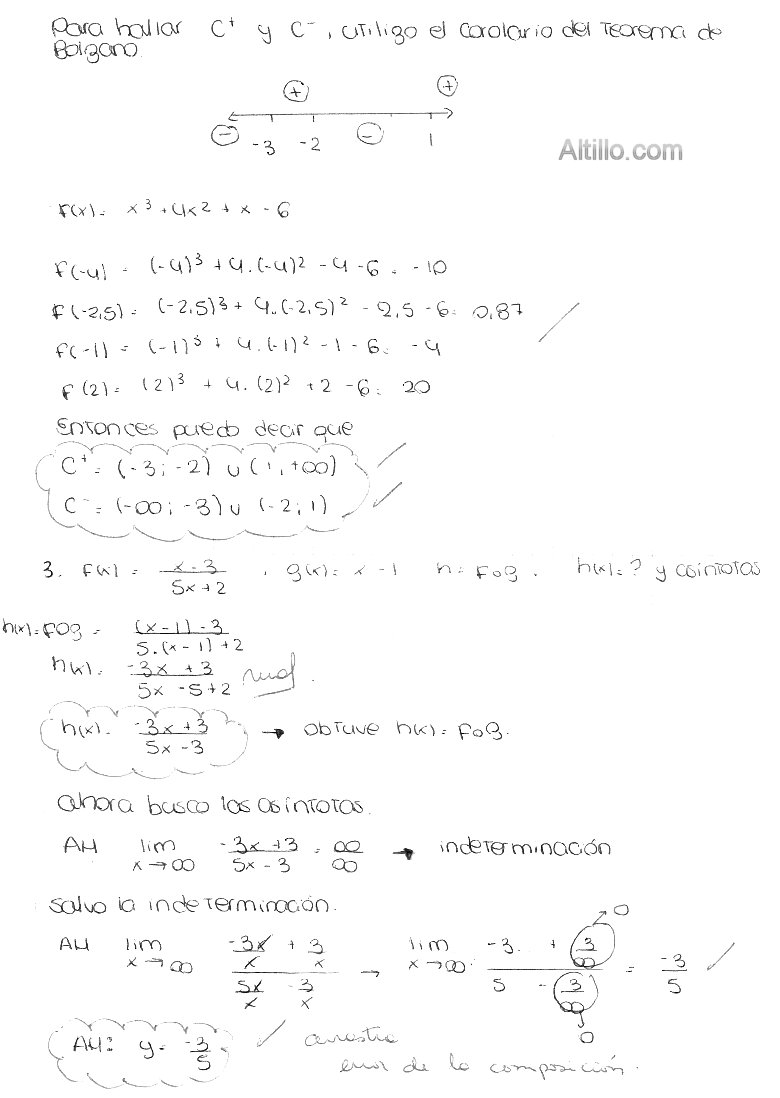 Para hallar C⁺ y C⁻, utilizo el corolario del Teorema de
Bolzano
+ +
- -3 -2 - 1
Altillo.com
F(x) = x³ + 4x² + x - 6
F(-4) = (-4)³ + 4.(-4)² - 4 - 6 = -10
F(-2,5) = (-2,5)³ + 4.(-2,5)² - 2,5 - 6 = 0,87
F(-1) = (-1)³ + 4.(-1)² - 1 - 6 = -4
F(2) = (2)³ + 4.(2)² + 2 - 6 = 20
Entonces puedo decir que
C⁺ = (-3; -2) ∪ (1, +∞)
C⁻ = (-∞; -3) ∪ (-2; 1)
3. F(x) = (x - 3)/(5x + 2) , g(x) = x - 1 h = Fog. h(x) = ? y asintotas
h(x) = Fog = ((x - 1) - 3)/(5.(x - 1) + 2)
h(x) = (-3x + 3)/(5x - 5 + 2) mal.
h(x) = (-3x + 3)/(5x - 3) → obtuve h(x) = Fog.
Ahora busco las asintotas.
AH lim x→∞ (-3x + 3)/(5x - 3) = ∞/∞ → indeterminación
salvo la indeterminación.
AH lim x→∞ (-3x/x + 3/x)/(5x/x - 3/x) → lim x→∞ (-3 + 3/∞ → 0)/(5 - 3/∞ → 0) = -3/5
AH: y = -3/5 arrastra
error de la composición.